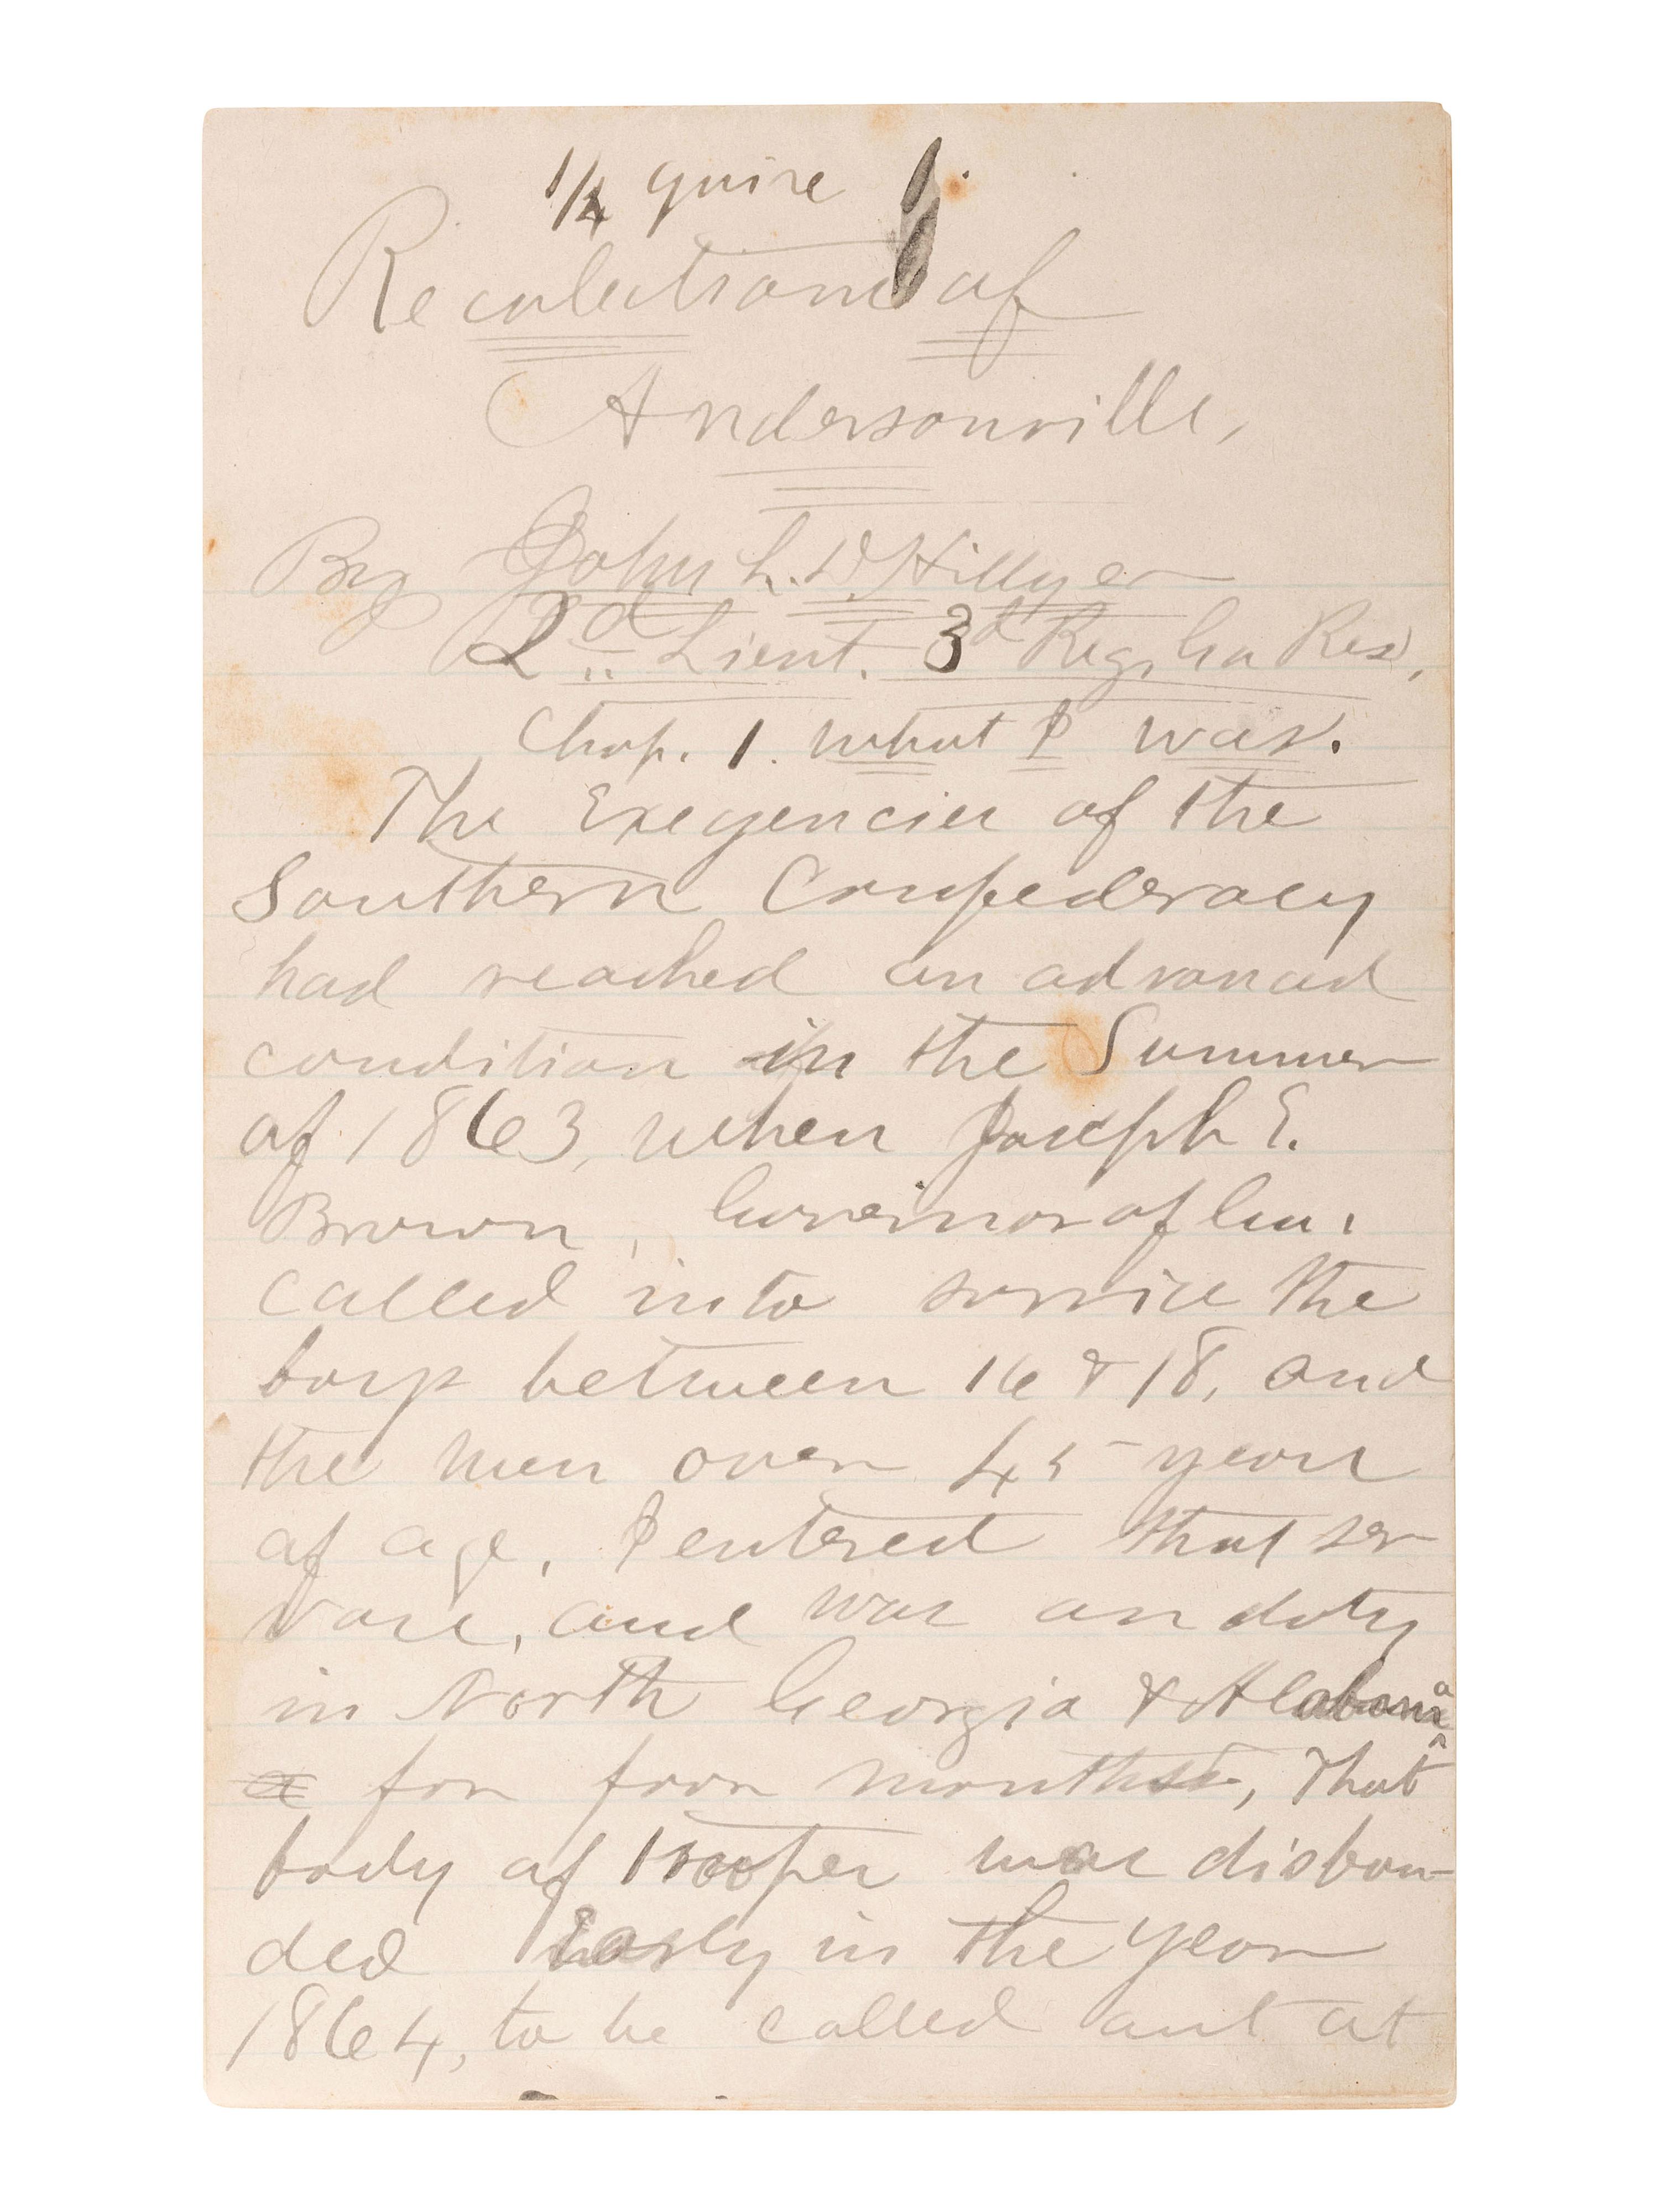 1/4 quire
Recolections of
Andersonville,
By John L. D. Hillyer
2d Lieut. 3d Reg. Ga Res,
Chap. 1. what I was.
The Exegencies of the
Southern Confederacy
had reached an advanced
condition in the Summer
of 1863, when Joseph E.
Brown, Governor of Ga.
called into service the
boys between 16 & 18, and
the men over 45 years
of age. I entered that ser
vice, and was on duty
in North Georgia & Alabama
for four months, That
body of troops was disban-
ded Early in the year
1864, to be called out at